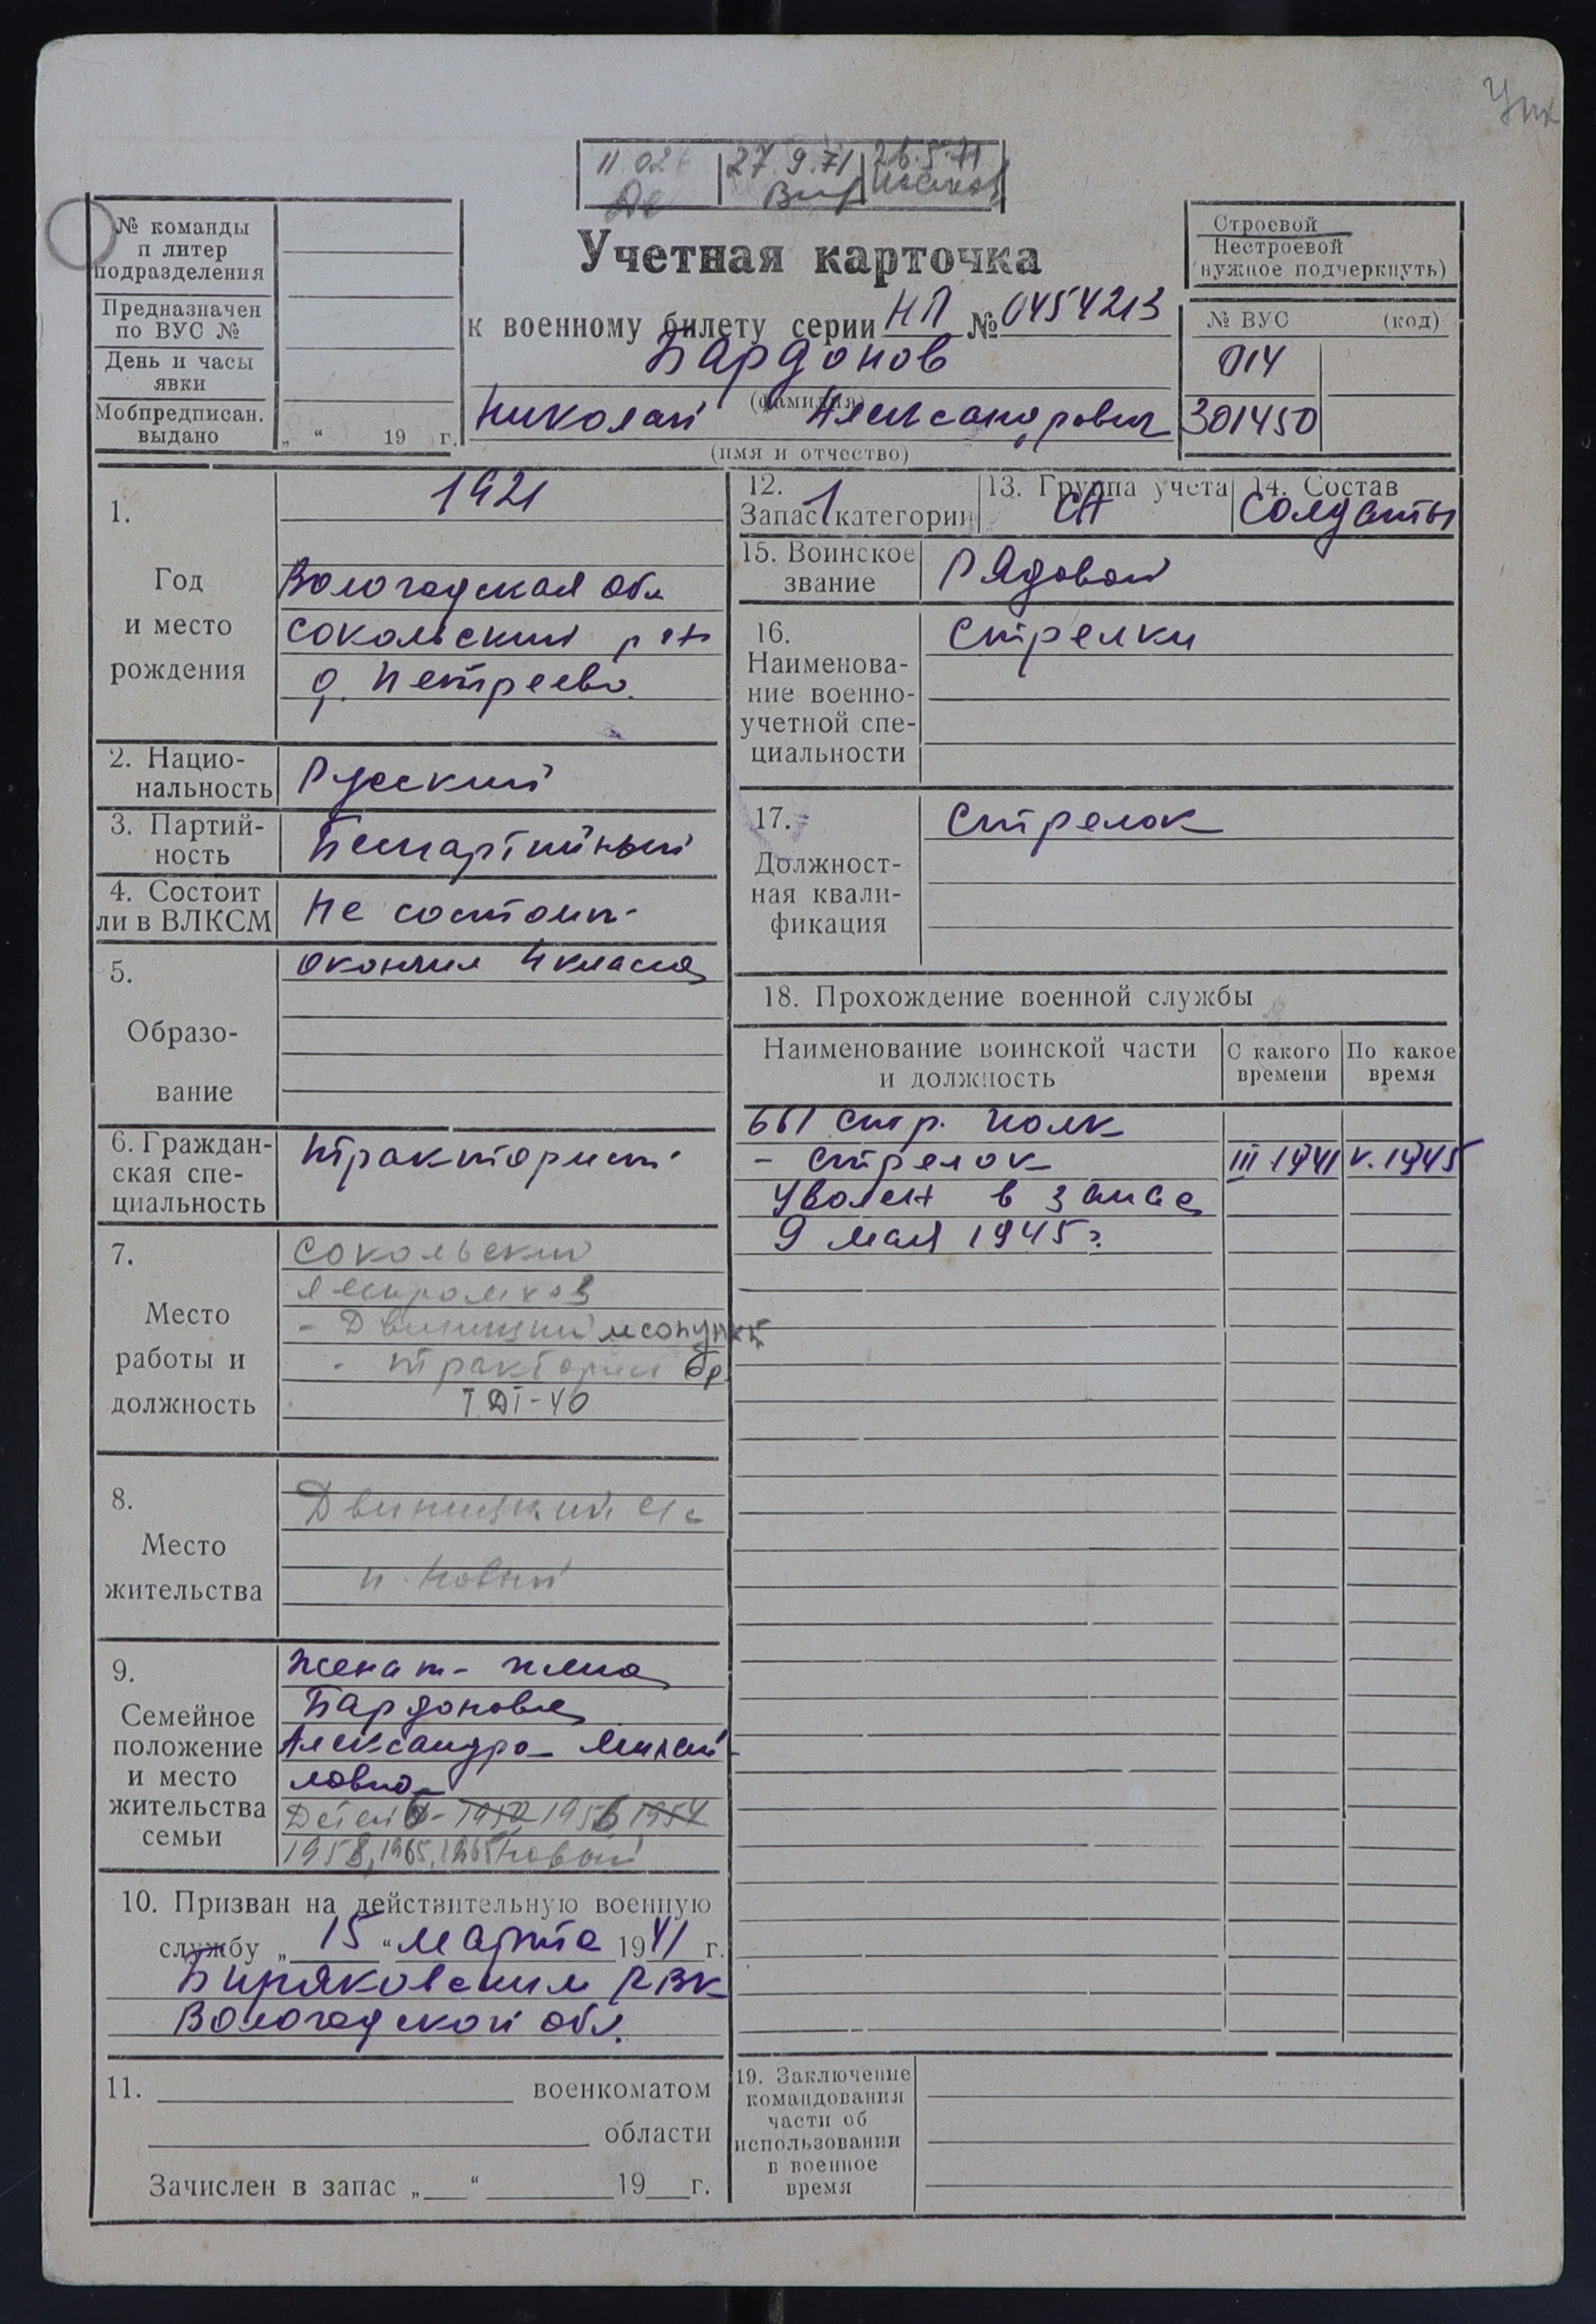 11.02
27.9.71
26.5.71
№ команды
п литер
подразделения
Предназначен
по ВУС №
День и часы
явки
Мобпредписан.
выдано
„ “ 19 г.
Учетная карточка
к военному билету серии НЛ № 0454213
Бардонов
(фамилия)
Николай Александрович
(имя и отчество)
Строевой
Нестроевой
(нужное подчеркнуть)
№ ВУС (код)
014
301450
1.
Год
и место
рождения
1921
Вологодская обл
Сокольский р-н
д. Петреево.
2. Нацио-
нальность
Русский
3. Партий-
ность
Беспартийный
4. Состоит
ли в ВЛКСМ
Не состоит
5.
Образо-
вание
Окончил 4 класса
6. Граждан-
ская спе-
циальность
тракторист
7.
Место
работы и
должность
Сокольский
леспромхоз
- Двиницкий лесопункт
- тракторист
ТДТ-40
8.
Место
жительства
Двиницкий с/с
п. Новый
9.
Семейное
положение
и место
жительства
семьи
Женат - жена
Бардонова
Александра Михай-
ловна
Детей - 1952 1956 1954
1958, 1965, 1965 Новый
10. Призван на действительную военную
службу „ 15 “ марта 1941 г.
Биряковским РВК
Вологодской обл.
11. военкоматом
области
Зачислен в запас „ “ 19 г.
12.
Запас 1 категории
13. Группа учета
СА
14. Состав
Солдаты
15. Воинское
звание
Рядовой
16.
Наименова-
ние военно-
учетной спе-
циальности
Стрелки
17.
Должност-
ная квали-
фикация
Стрелок
18. Прохождение военной службы
Наименование воинской части
и должность
С какого
времени
По какое
время
661 стр. полк
- стрелок III 1941 V. 1945
Уволен в запас
9 мая 1945 г.
19. Заключение
командования
части об
использовании
в военное
время